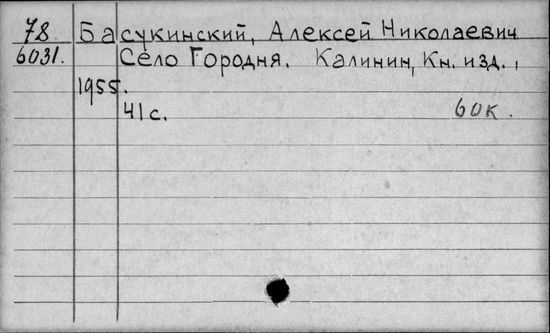 78 Басукинский, Алексей Николаевич
6031. Село Городня. Калинин, Кн. изд.,
1955.
41 с. 60к.